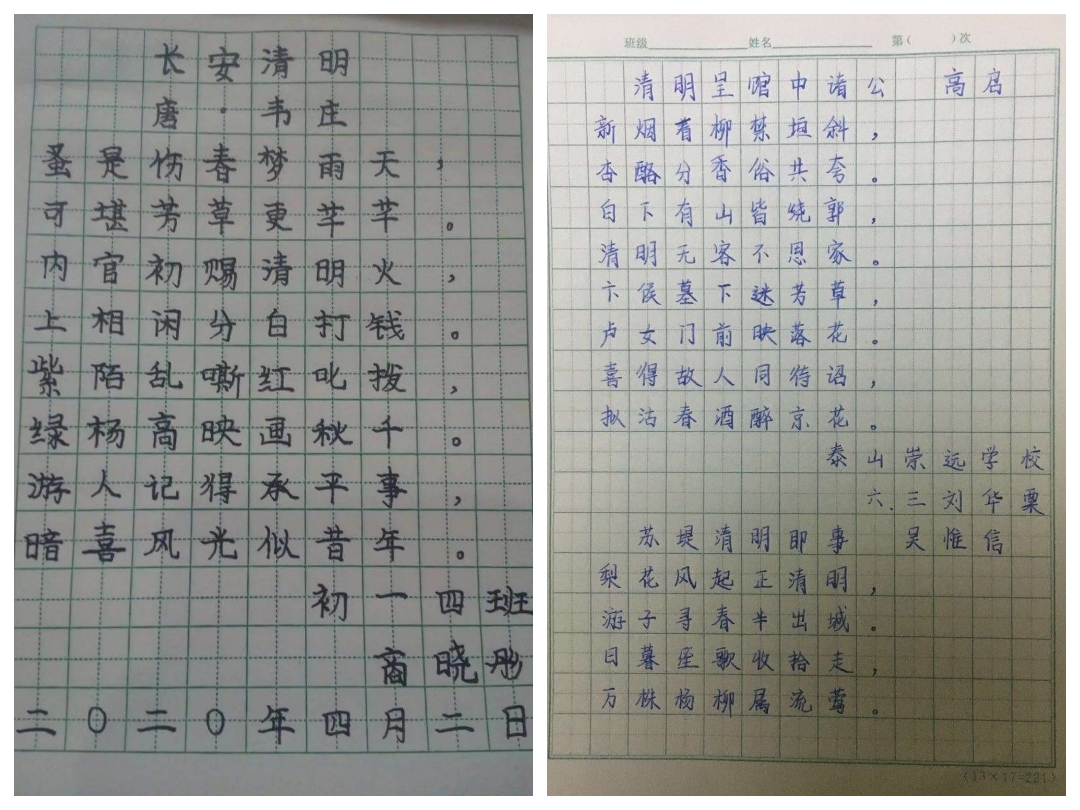 长安清明
唐·韦庄
蚤是伤春梦雨天，
可堪芳草更芊芊。
内官初赐清明火，
上相闲分白打钱。
紫陌乱嘶红叱拨，
绿杨高映画秋千。
游人记得承平事，
暗喜风光似昔年。
初一四班
商晓彤
二〇二〇年四月二日
班级 姓名 第( )次
清明呈馆中诸公 高启
新烟着柳禁垣斜，
杏酪分香俗共夸。
白下有山皆绕郭，
清明无客不思家。
卞侯墓下迷芳草，
卢女门前映落花。
喜得故人同待诏，
拟沽春酒醉京花。
泰山崇远学校
六.三刘华栗
苏堤清明即事 吴惟信
梨花风起正清明，
游子寻春半出城。
日暮笙歌收拾走，
万株杨柳属流莺。
(13×17=221)